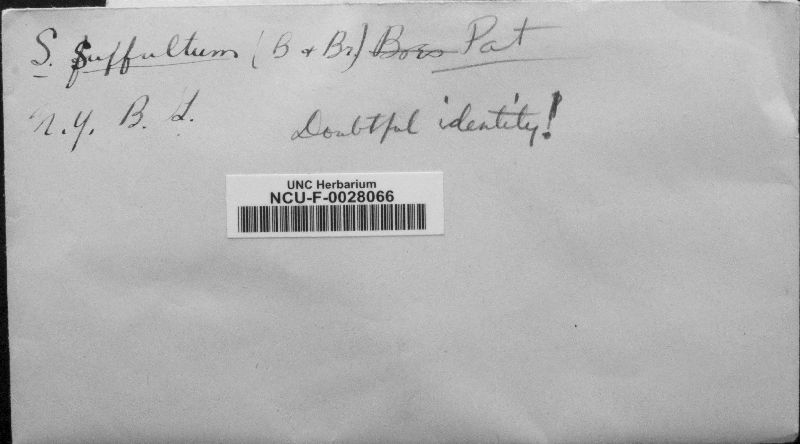 S. suffultum (B + Br) Boes Pat
N.Y. B. G.
Doubtful identity!
UNC Herbarium
NCU-F-0028066